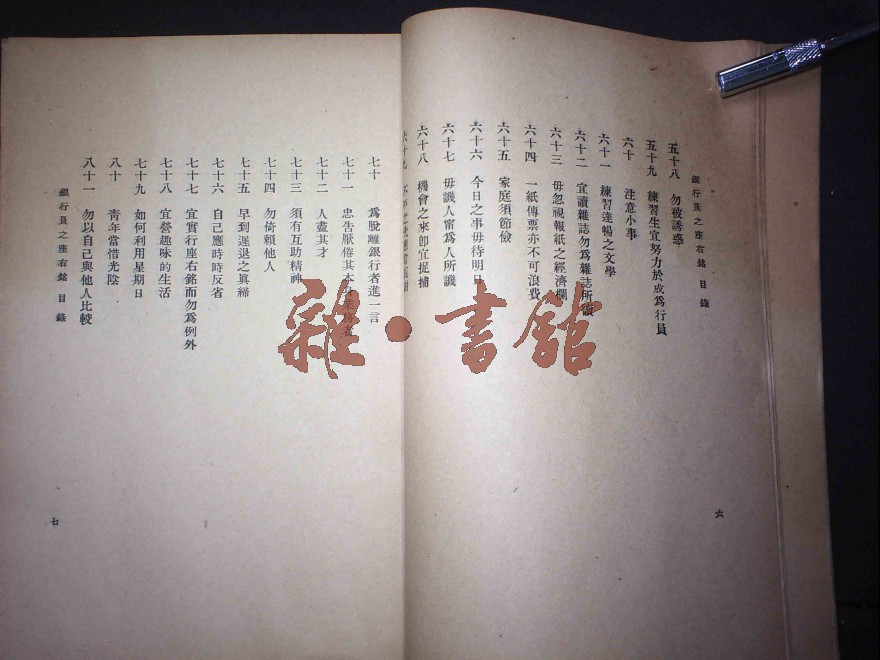 銀行員之座右銘 目錄
五十八 勿被誘惑
五十九 練習生宜努力於成為行員
六十 注意小事
六十一 練習達暢之文學
六十二 宜讀雜誌勿為雜誌所
六十三 毋忽視報紙之經濟欄
六十四 一紙傳票亦不可浪費
六十五 家庭須節儉
六十六 今日之事毋待明日
六十七 毋譏人甯為人所譏
六十八 機會之來即宜捉捕
六十九
六
七十 為脫離銀行者進一言
七十一 忠告厭倦其本
七十二 人盡其才
七十三 須有互助精神
七十四 勿倚賴他人
七十五 早到遲退之真締
七十六 自己應時時反省
七十七 宜實行座右銘而勿為例外
七十八 宜營趣味的生活
七十九 如何利用星期日
八十 青年當惜光陰
八十一 勿以自己與他人比較
銀行員之座右銘 目錄
七
雜·書館